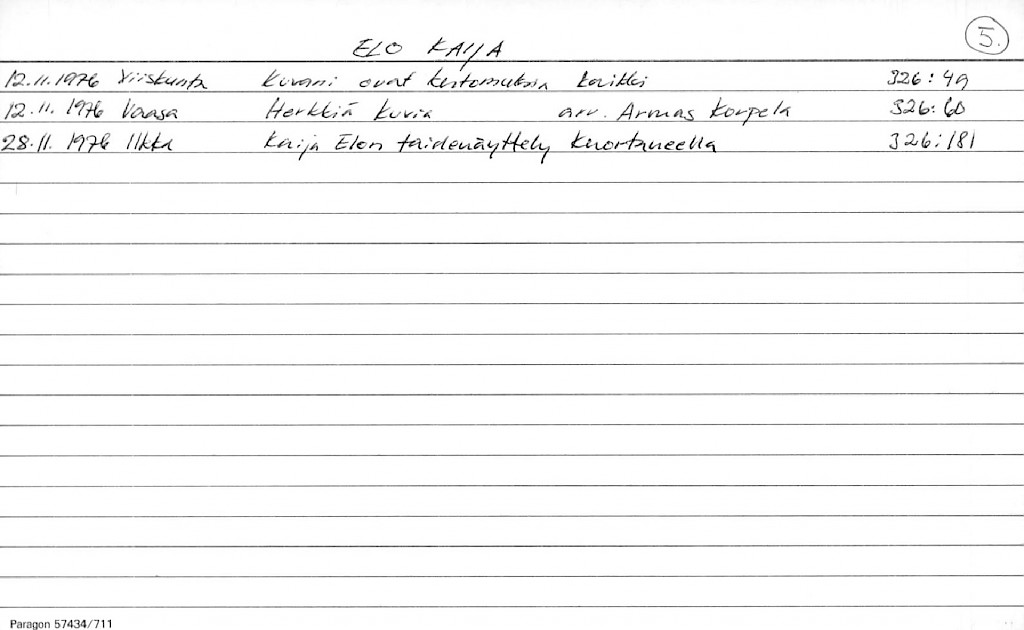 ELO KAIJA 5.
12.11.1976 Viiskunta Kuvani ovat kertomuksia kaikki 326:49
12.11.1976 Vaasa Herkkiä kuvia arv. Armas Korpela 326:60
28.11.1976 Ilkka Kaija Elon taidenäyttely Kuortaneella 326:181
Paragon 57434/711